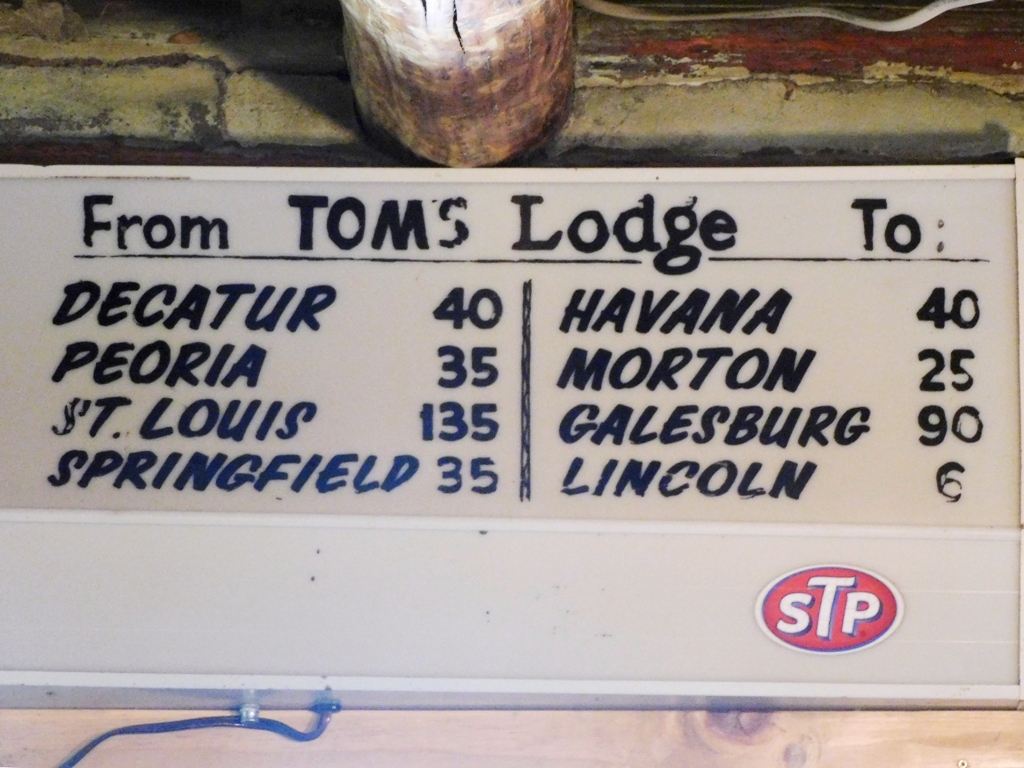 From TOM'S Lodge To:
DECATUR 40
PEORIA 35
ST. LOUIS 135
SPRINGFIELD 35
HAVANA 40
MORTON 25
GALESBURG 90
LINCOLN 6
STP